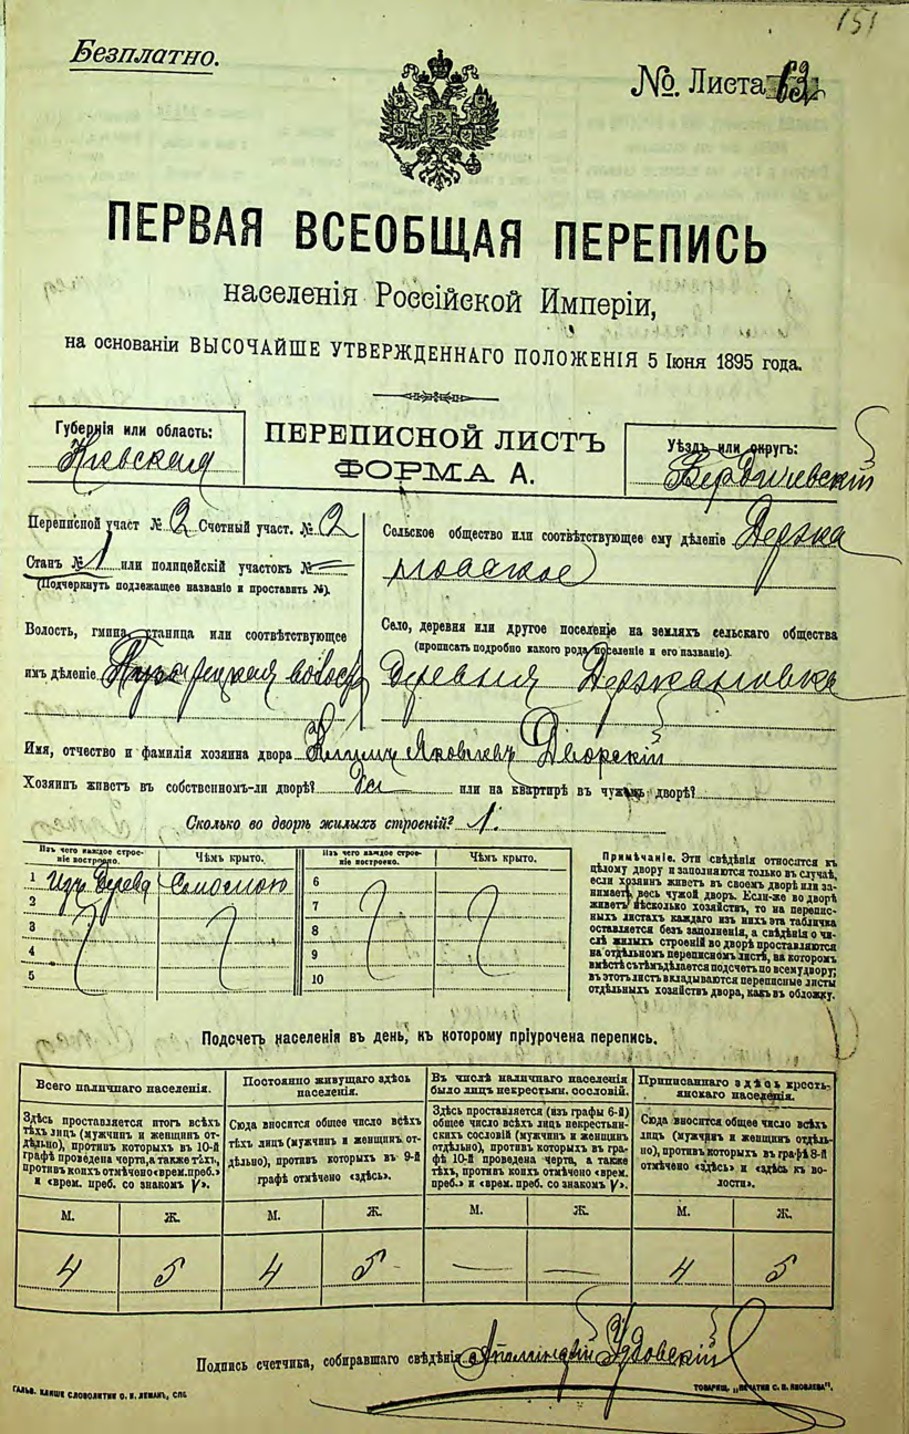 151
Безплатно.
№. Листа
ПЕРВАЯ ВСЕОБЩАЯ ПЕРЕПИСЬ
населенія Россійской Имперіи,
на основаніи ВЫСОЧАЙШЕ УТВЕРЖДЕННАГО ПОЛОЖЕНІЯ 5 Іюня 1895 года.
Губернія или область:
Кіевская
ПЕРЕПИСНОЙ ЛИСТЪ
ФОРМА А.
Уѣздъ или округъ:
Бердичевскій
Переписной участ № 2 Счетный участ. № 2
Станъ № 1 или полицейскій участокъ №
(Подчеркнуть подлежащее названіе и проставить №).
Волость, гмина, станица или соотвѣтствующее
имъ дѣленіе волость
Сельское общество или соотвѣтствующее ему дѣленіе Держа
новское
Село, деревня или другое поселеніе на земляхъ сельскаго общества
(прописать подробно какого рода поселеніе и его названіе).
деревня Держановка
Имя, отчество и фамилія хозяина двора Яковлевъ Дворскій
Хозяинъ живетъ въ собственномъ-ли дворѣ? Да или на квартирѣ въ чужомъ дворѣ?
Сколько во дворѣ жилыхъ строеній? 1.
Изъ чего каждое строе-
ніе построено.
Чѣмъ крыто.
Изъ чего каждое строе-
ніе построено.
Чѣмъ крыто.
1 Изъ дерева Соломою 6
2 7
3 8
4 9
5 10
Примѣчаніе. Эти свѣдѣнія относятся къ
цѣлому двору и заполняются только въ случаѣ,
если хозяинъ живетъ въ своемъ дворѣ или за-
нимаетъ весь чужой дворъ. Если-же во дворѣ
живетъ нѣсколько хозяйствъ, то на перепис-
ныхъ листахъ каждаго изъ нихъ эта табличка
оставляется безъ заполненія, а свѣдѣнія о чи-
слѣ жилыхъ строеній во дворѣ проставляются
на отдѣльномъ переписномъ листѣ, на которомъ
вмѣстѣ съ тѣмъ дѣлается подсчетъ по всему двору;
въ этотъ листъ вкладываются переписные листы
отдѣльныхъ хозяйствъ двора, какъ въ обложку.
Подсчетъ населенія въ день, къ которому пріурочена перепись.
Всего наличнаго населенія.
Здѣсь проставляется итогъ всѣхъ
тѣхъ лицъ (мужчинъ и женщинъ от-
дѣльно), противъ которыхъ въ 10-й
графѣ проведена черта, а также тѣхъ,
противъ коихъ отмѣчено «врем. преб.»
и «врем. преб. со знакомъ V».
Постоянно живущаго здѣсь
населенія.
Сюда вносится общее число всѣхъ
тѣхъ лицъ (мужчинъ и женщинъ от-
дѣльно), противъ которыхъ въ 9-й
графѣ отмѣчено «здѣсь».
Въ числѣ наличнаго населенія
было лицъ некрестьян. сословій.
Здѣсь проставляется (изъ графы 6-й)
общее число всѣхъ лицъ некрестьян-
скихъ сословій (мужчинъ и женщинъ
отдѣльно), противъ которыхъ въ гра-
фѣ 10-й проведена черта, а также
тѣхъ, противъ коихъ отмѣчено «врем.
преб.» и «врем. преб. со знакомъ V».
Приписаннаго здѣсь кресть-
янскаго населенія.
Сюда вносится общее число всѣхъ
лицъ (мужчинъ и женщинъ отдѣль-
но), противъ которыхъ въ графѣ 8-й
отмѣчено «здѣсь» и «здѣсь къ во-
лости».
М. Ж. М. Ж. М. Ж. М. Ж.
4 5 4 5 — — 4 5
Подпись счетчика, собиравшаго свѣдѣнія
ГАЛЬВ. КЛИШЕ СЛОВОЛИТНИ О. И. ЛЕМАНЪ, СПБ
ТОВАРИЩ. „ПЕЧАТНЯ С. П. ЯКОВЛЕВА".